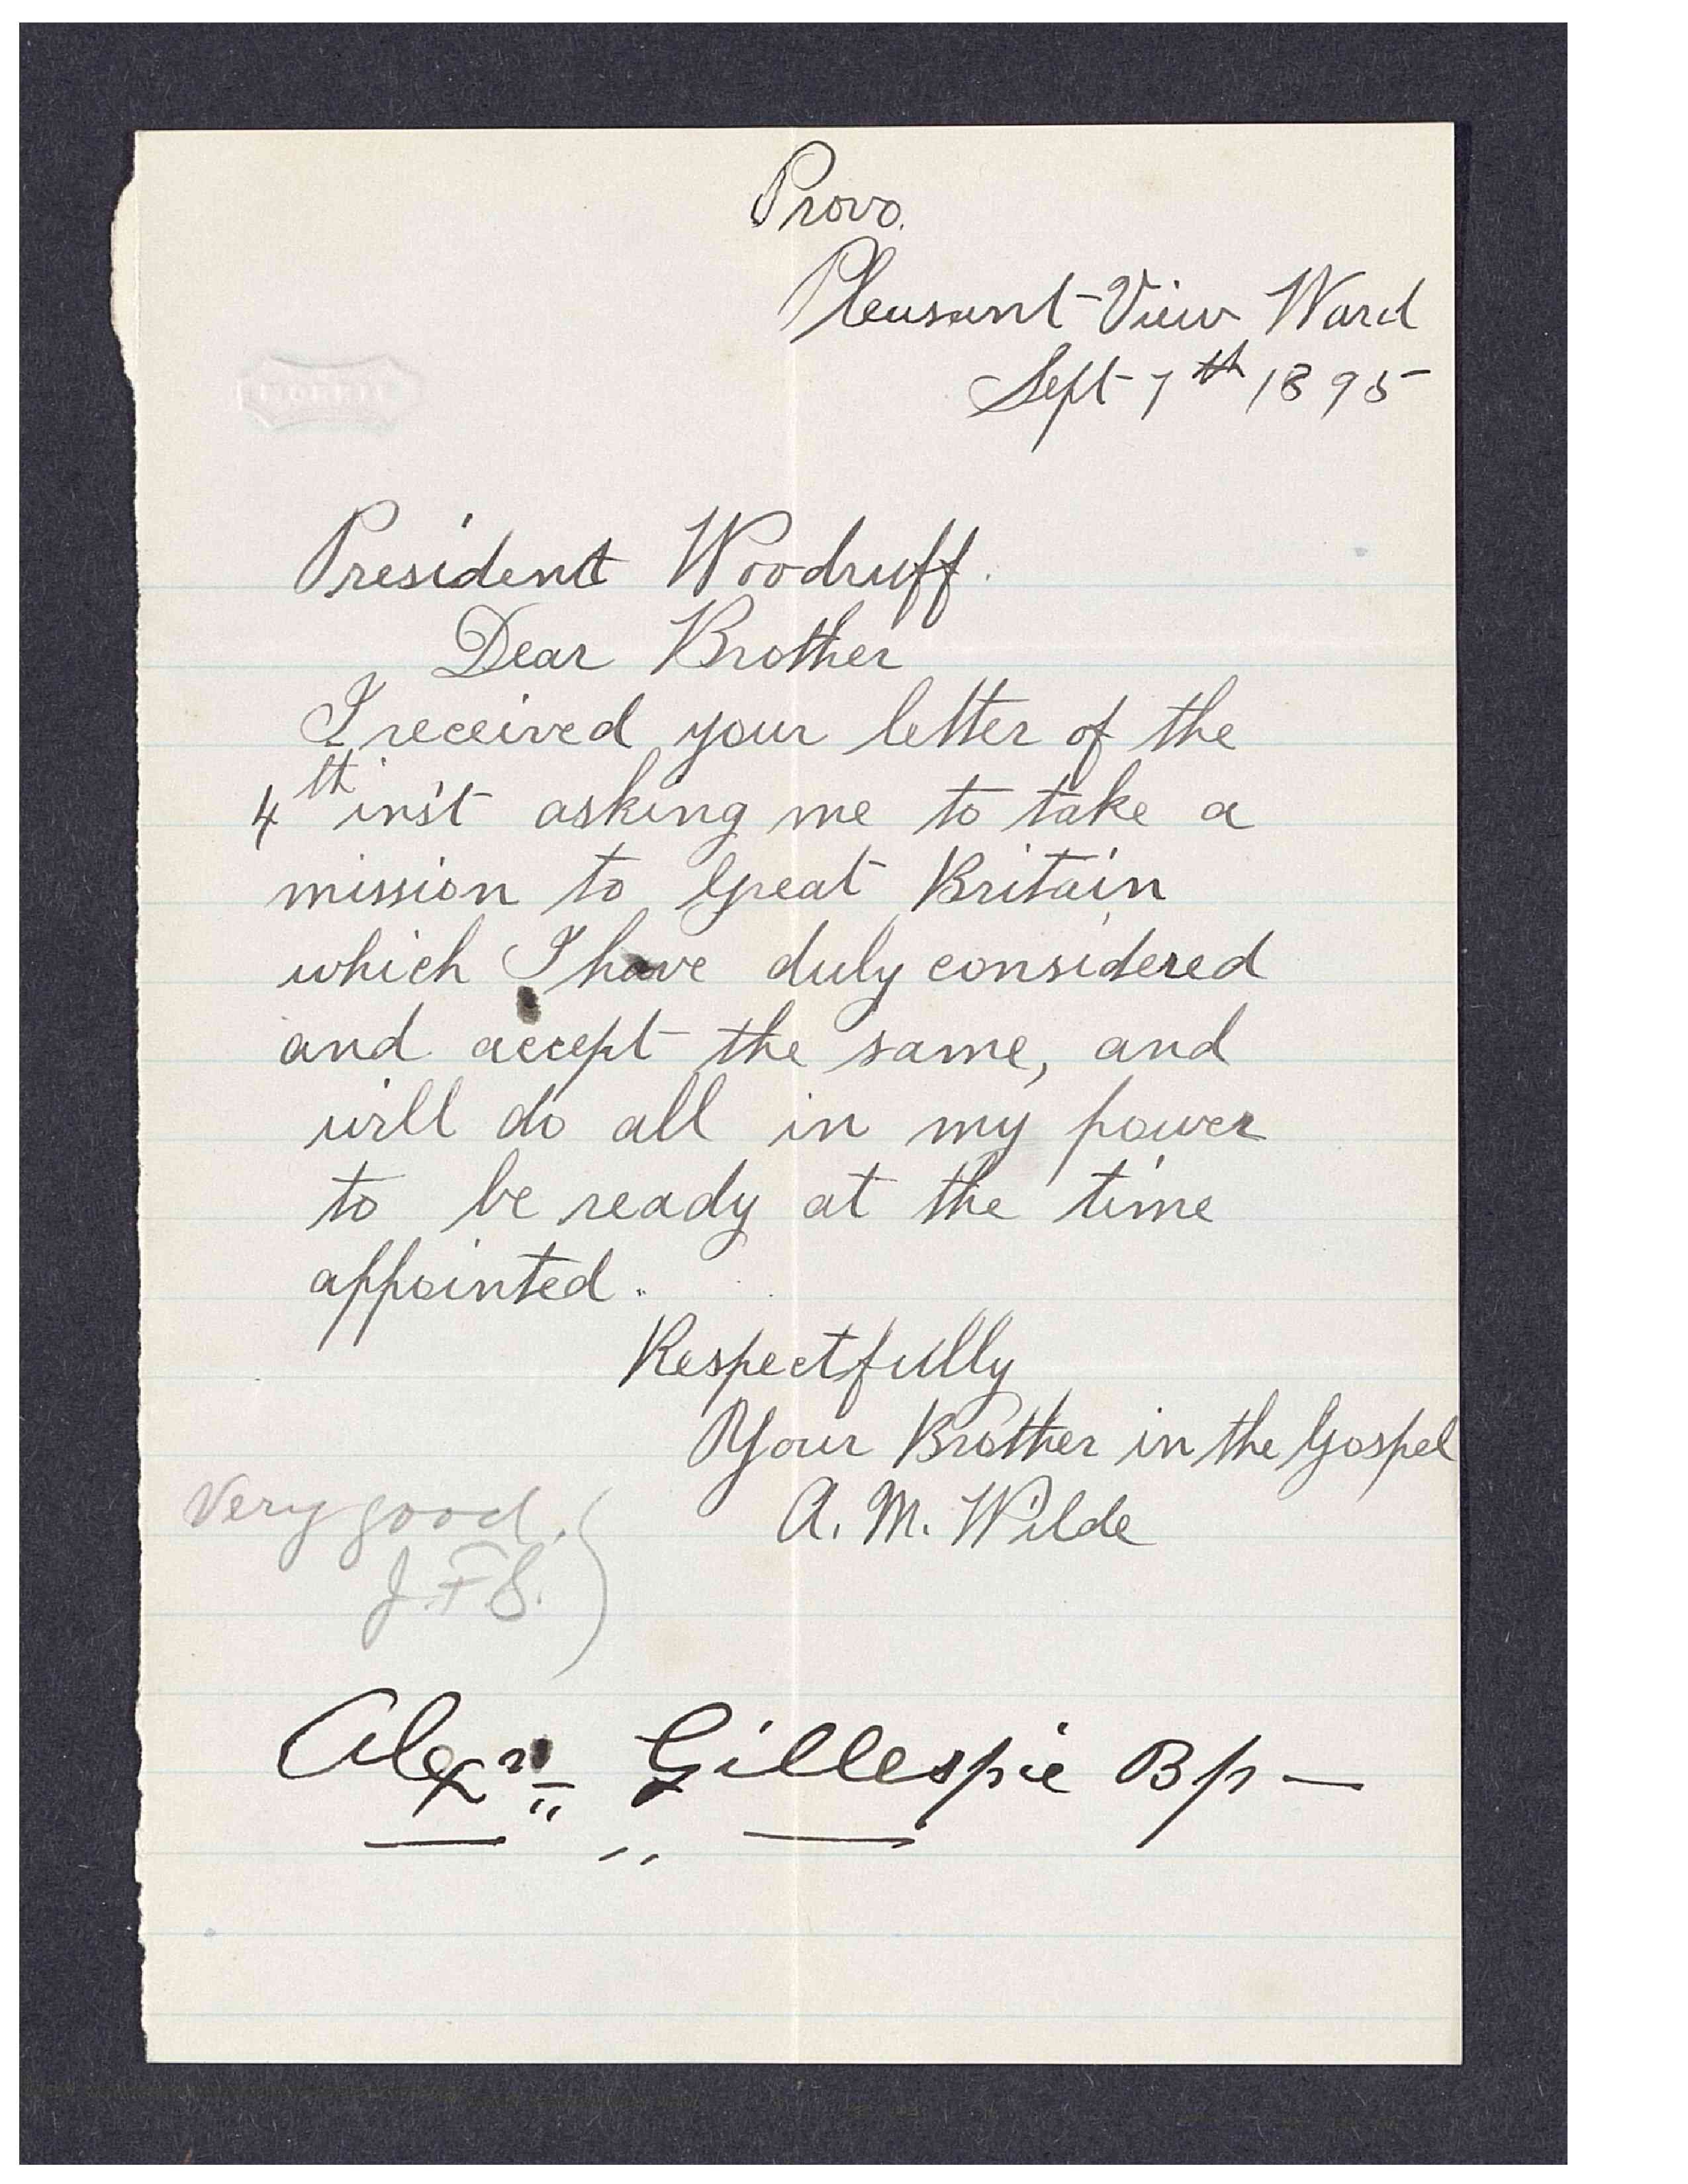 Provo.
Pleasant-View Ward
Sept 7th 1895
President Woodruff.
Dear Brother
I received your letter of the
4th inst asking me to take a
mission to Great Britain
which I have duly considered
and accept the same, and
will do all in my power
to be ready at the time
appointed.
Respectfully
Your Brother in the Gospel
A. M. Wilde
Very good.
J. F. S.
Alexr Gillespie Bp —